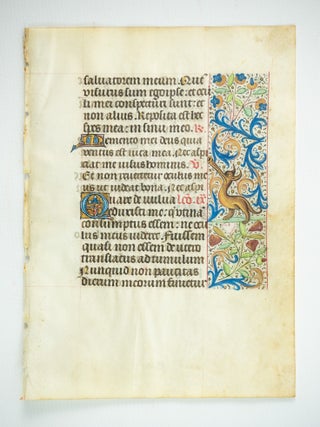 saluatorem meum. Que
visurus sum ego ipse: et ocu
li mei conspecturi sunt: et
non alius. Reposita est hec
spes mea: in sinu meo. R.
Memento mei deus quia
ventus est vita mea. Nec aspi
ciat me visus hominis. V.
Et non reuertetur oculus me
us ut videat bona. Nec aspi.
Quare de vulua lco. ix
eduxisti me: qui utina
consumptus essem: ne ocu
lus me videret. Fuissem
quasi non essem: de utero
translatus ad tumulum
Nunquid non paucitas
dierum meorum finietur